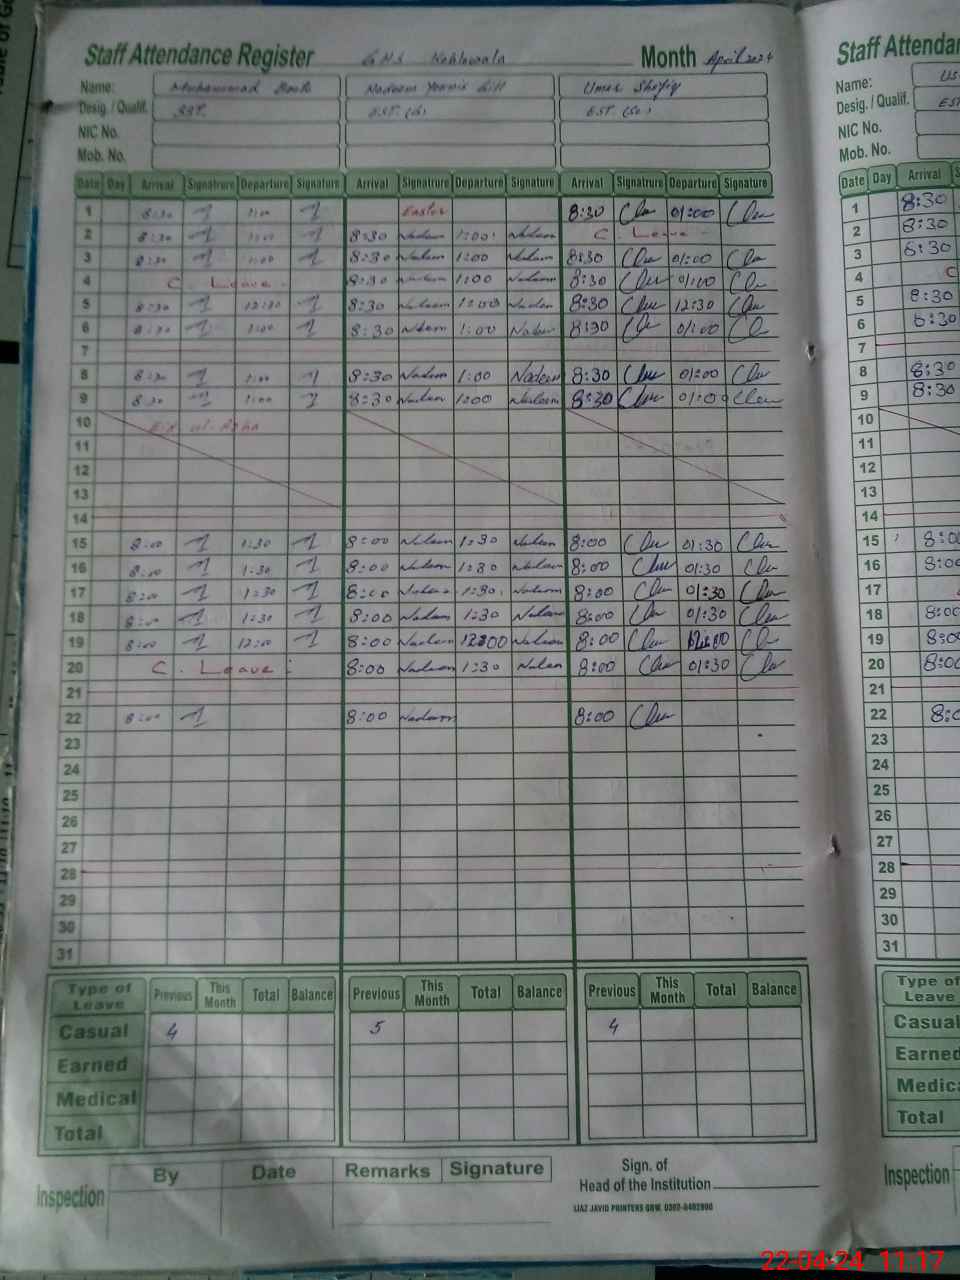 Staff Attendance Register G.H.S Month April 2024
Name: Muhammad Nadeem Younis Gill Umer Shafiq
Desig. / Qualif. SST. EST. (G) EST. (Sc)
NIC No.
Mob. No.
Date Day Arrival Signatrure Departure Signature Arrival Signatrure Departure Signature Arrival Signatrure Departure Signature
1 8:30 1:00 Easter 8:30 01:00
2 8:30 1:00 8:30 Nadeem 1:00 Nadeem C. Leave
3 8:30 1:00 8:30 Nadeem 1:00 Nadeem 8:30 01:00
4 C. Leave 8:30 Nadeem 1:00 Nadeem 8:30 01:00
5 8:30 12:30 8:30 Nadeem Nadeem 8:30 12:30
6 8:30 1:00 8:30 Nadeem 1:00 Nadeem 8:30 01:00
7
8 8:30 1:00 8:30 Nadeem 1:00 Nadeem 8:30 01:00
9 8:30 1:00 8:30 Nadeem 1:00 Nadeem 8:30 01:00
10 Eid ul-
11
12
13
14
15 8:00 1:30 8:00 Nadeem 1:30 Nadeem 8:00 01:30
16 8:00 1:30 8:00 Nadeem 1:30 Nadeem 8:00 01:30
17 8:00 1:30 8:00 Nadeem 1:30 Nadeem 8:00 01:30
18 8:00 1:30 8:00 Nadeem 1:30 Nadeem 8:00 01:30
19 8:00 12:00 8:00 Nadeem Nadeem 8:00
20 C. Leave 8:00 Nadeem 1:30 Nadeem 8:00 01:30
21
22 8:00 8:00 Nadeem 8:00
23
24
25
26
27
28
29
30
31
Type of Leave Previous This Month Total Balance Previous This Month Total Balance Previous This Month Total Balance
Casual 4 5 4
Earned
Medical
Total
Inspection By Date Remarks Signature
Sign. of
Head of the Institution
Staff Attenda
Name:
Desig. / Qualif. EST
NIC No.
Mob. No.
Date Day Arrival
1 8:30
2 8:30
3 8:30
4 C
5 8:30
6 8:30
7
8 8:30
9 8:30
10
11
12
13
14
15 8:00
16 8:00
17
18 8:00
19 8:00
20 8:00
21
22
23
24
25
26
27
28
29
30
31
Type of
Leave
Casual
Earned
Medica
Total
Inspection
22-04-24 11:17